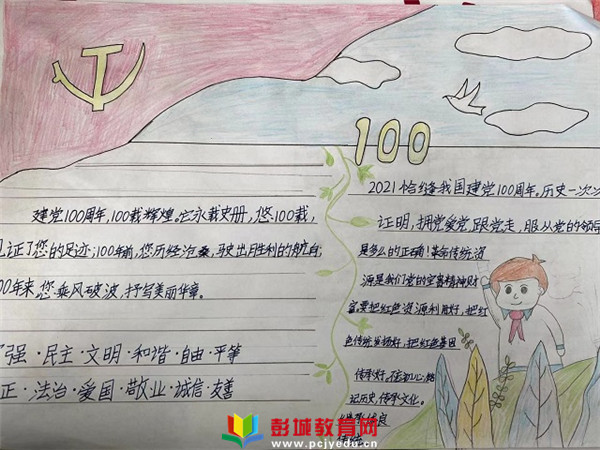 100
建党100周年,100载辉煌。它永载史册,您100载,
见证了您的足迹;100年前,您历经沧桑,驶出胜利的航台;
00年来,您乘风破波,抒写美丽华章。
强·民主·文明·和谐·自由·平等
正·法治·爱国·敬业·诚信·友善
2021恰逢我国建党100周年,历史一次次
证明,拥党爱党,跟党走,服从党的领导
是多么的正确!革命传统,资
源是我们党的宝贵精神财
富,要把红色资源利用好,把红
色传统发扬好,把红色基因
传承好,不忘初心,铭
记历史,传承文化。
优良
传统
彭城教育网
www.pcjyedu.cn